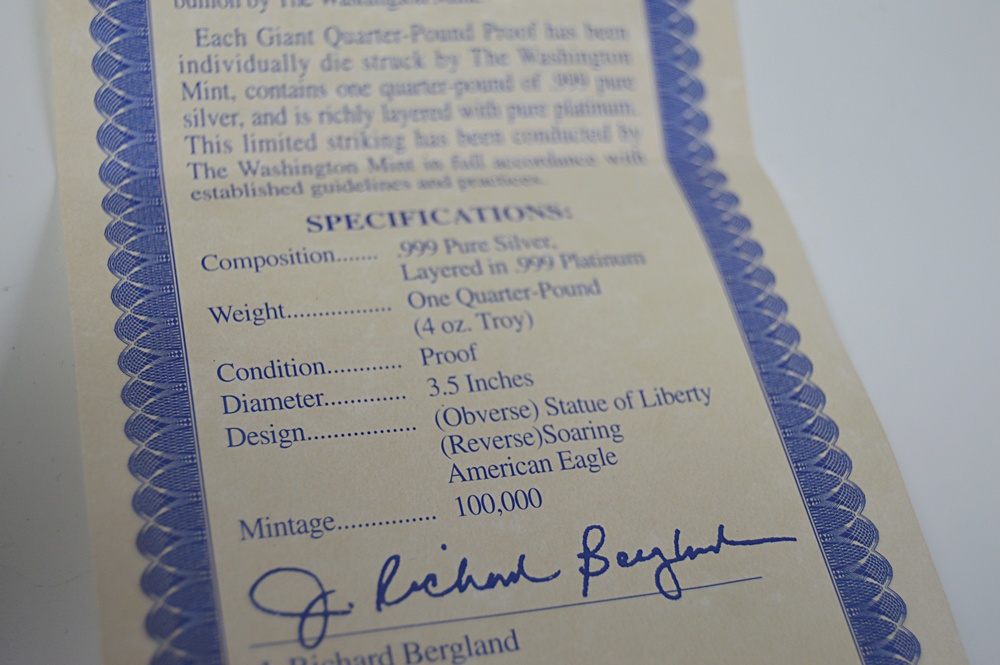 bullion by The Washington Mint.
Each Giant Quarter-Pound Proof has been
individually die struck by The Washington
Mint, contains one quarter-pound of .999 pure
silver, and is richly layered with pure platinum.
This limited striking has been conducted by
The Washington Mint in full accordance with
established guidelines and practices.
SPECIFICATIONS:
Composition....... .999 Pure Silver,
Layered in .999 Platinum
Weight................. One Quarter-Pound
(4 oz. Troy)
Condition............ Proof
Diameter............. 3.5 Inches
Design................. (Obverse) Statue of Liberty
(Reverse)Soaring
American Eagle
Mintage............... 100,000
J. Richard Bergland
J. Richard Bergland